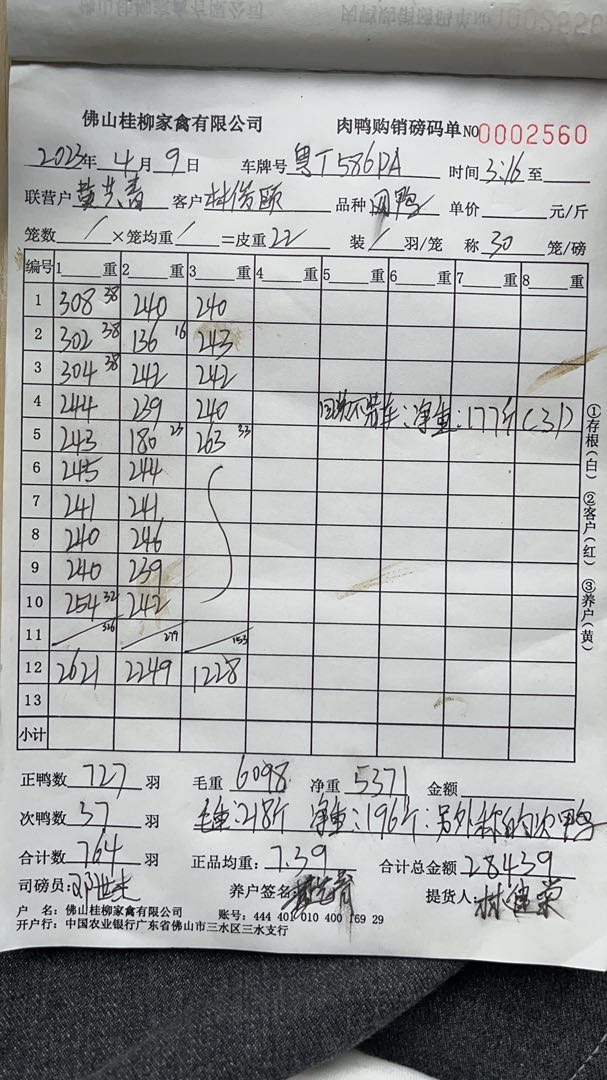 佛山桂柳家禽有限公司 肉鸭购销磅码单 NO 0002560
2023年 4月 9日 车牌号 粤T586DA 时间 3:16 至
联营户 黄先青 客户 林俊颐 品种 网鸭 单价 元/斤
笼数 / ×笼均重 / =皮重 22 装 / 羽/笼 称 30 笼/磅
编号 1 重 2 重 3 重 4 重 5 重 6 重 7 重 8 重
1 308 38 240 240
2 302 38 136 16 243
3 304 38 242 242
4 244 239 240 不装车:净重:177斤(31)
5 243 180 23 263 33
6 245 244
7 241 241
8 240 246
9 240 239
10 254 32 242
11 326 279 153
12 2621 2249 1228
13
小计
①存根(白) ②客户(红) ③养户(黄)
正鸭数 727 羽 毛重 6098 净重 5371 金额
次鸭数 37 羽 毛重:218斤 净重:196斤:另外称的次鸭
合计数 764 羽 正品均重: 7.39 合计总金额 28439
司磅员: 养户签名 提货人:
户 名: 佛山桂柳家禽有限公司 账号: 444 401 010 400 169 29
开户行: 中国农业银行广东省佛山市三水区三水支行